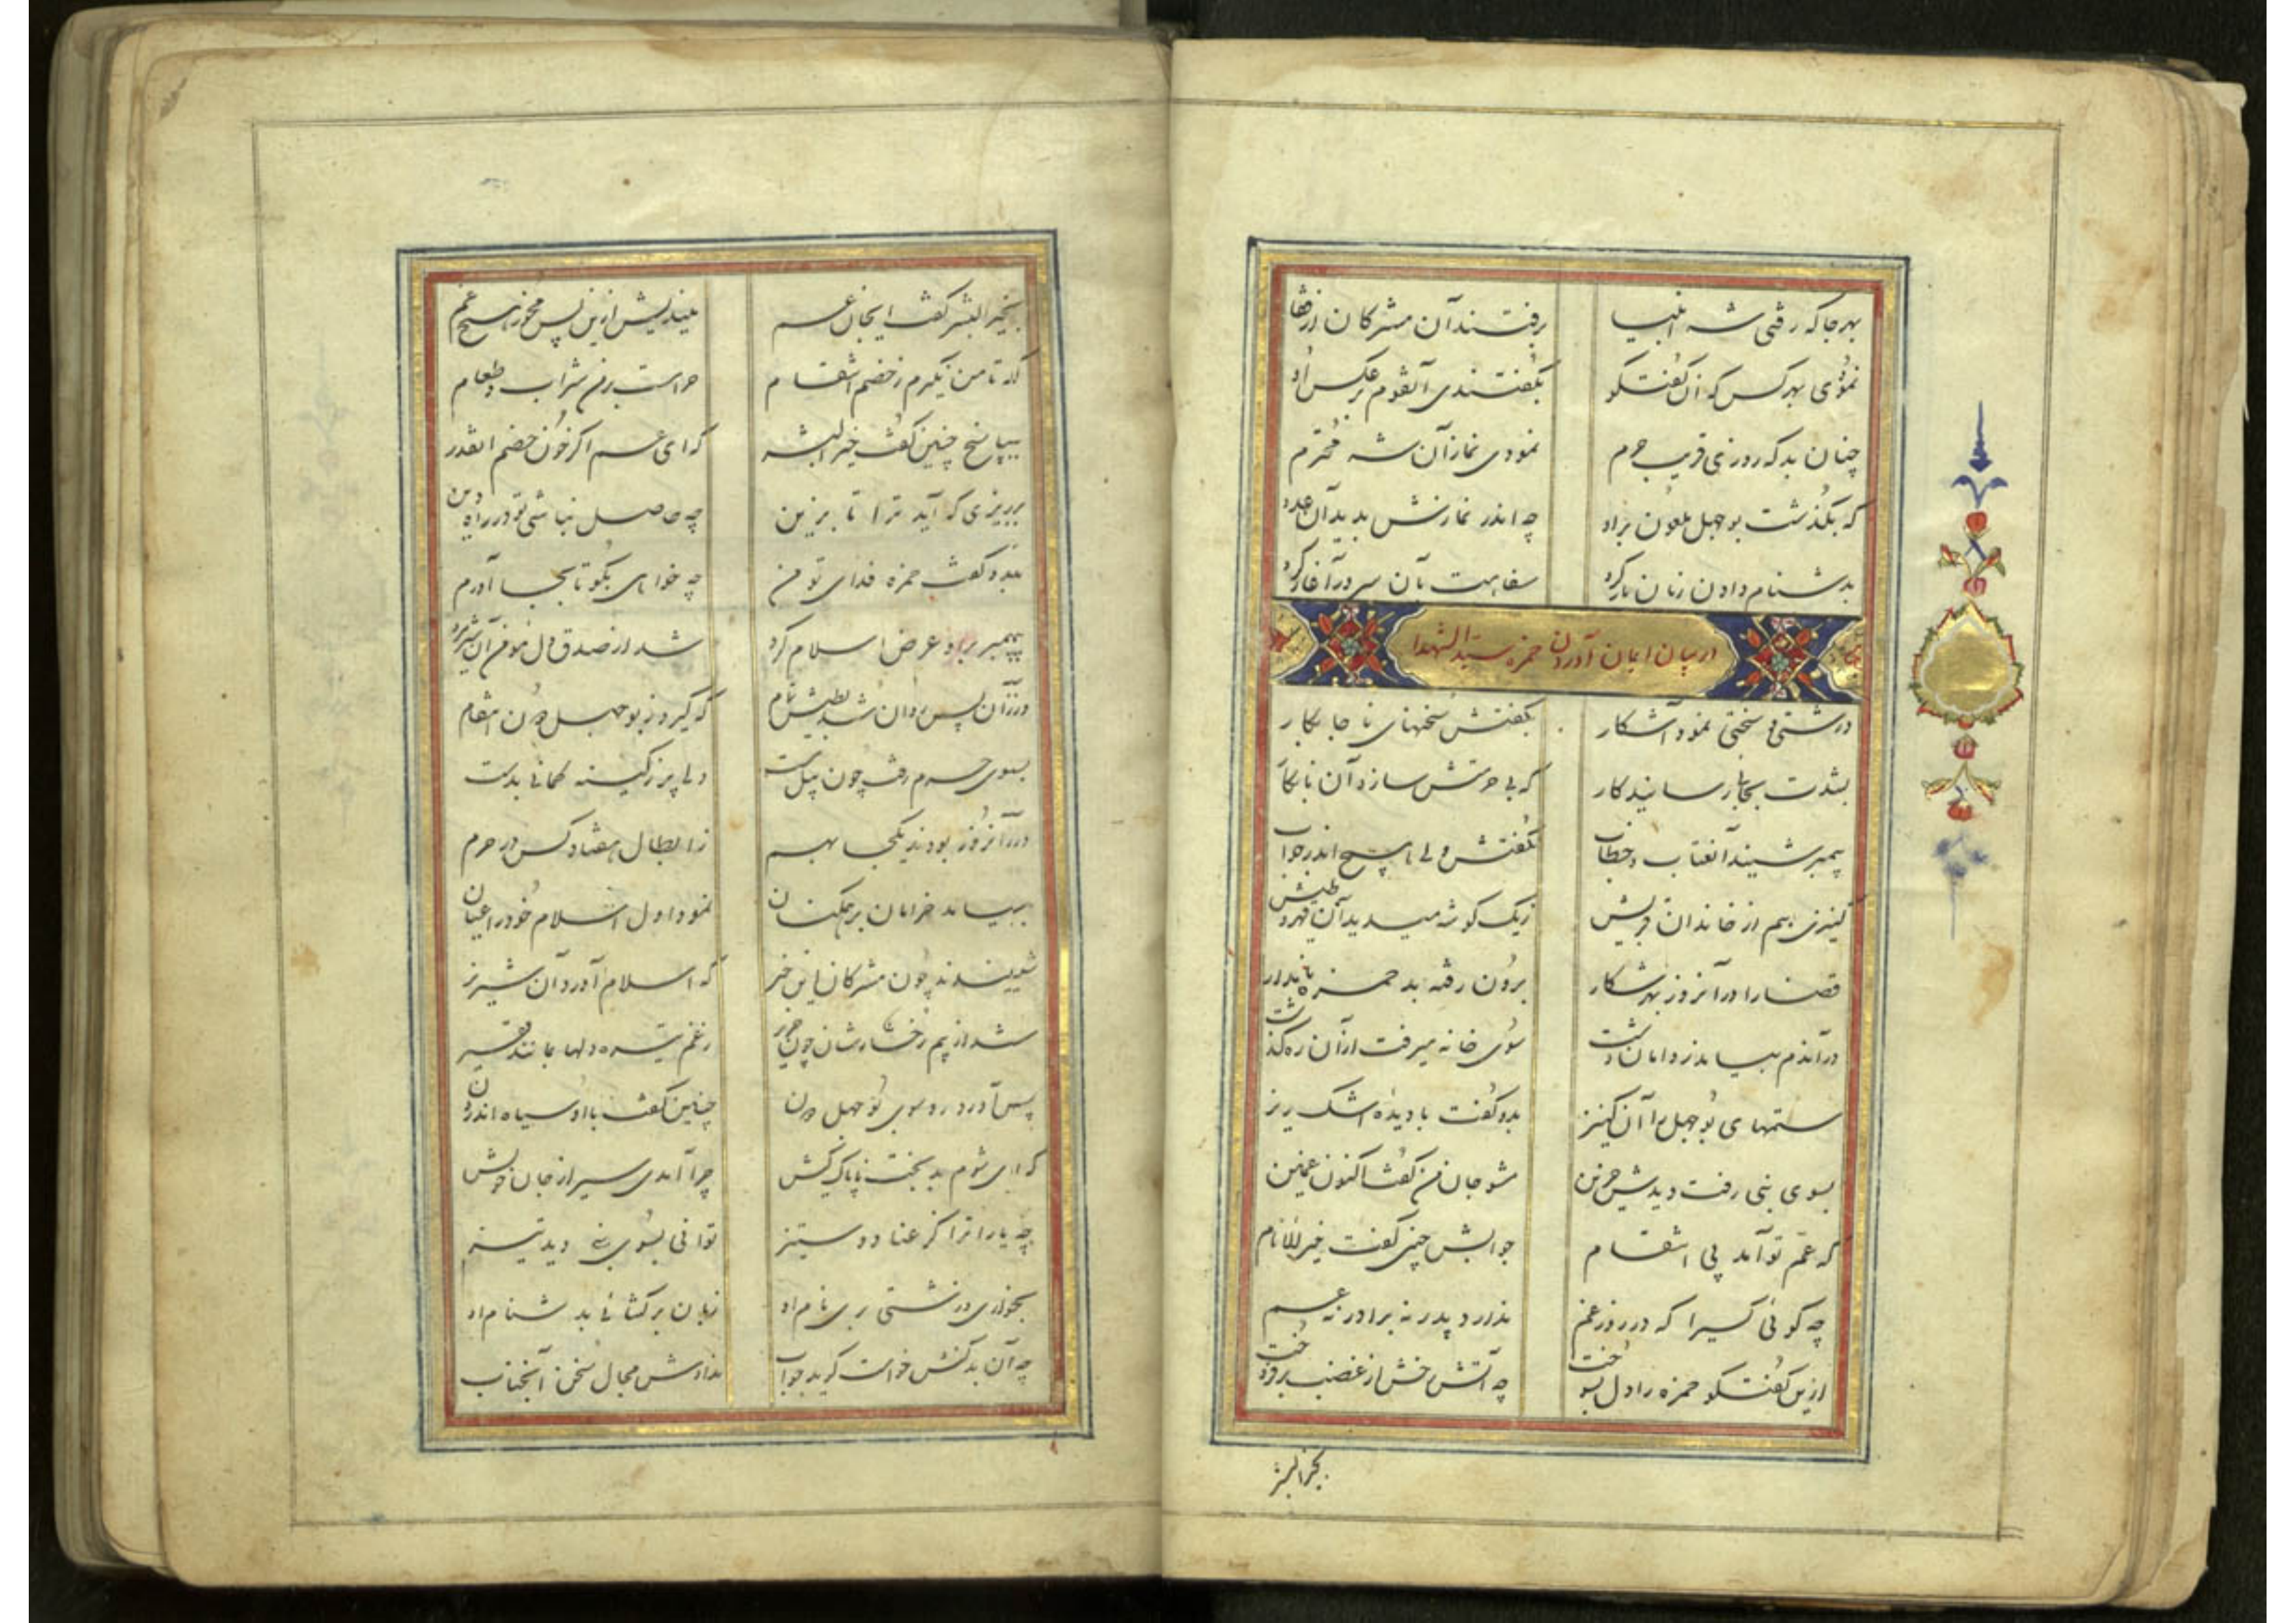 بهر جا که رفتی شه انبیا برفتند آن مشرکان از قفا
نمودی بهر کس که آن گفتگو بگفتندی آنقوم بر عکس او
چنان بد که روزی قریب حرم نمودی نماز آن شه محترم
که بگذشت بوجهل ملعون براو چه اندر نمازش بدید آن عدو
بدشنام دادن زبان باز کرد سفاهت بآن سرور آغاز کرد
در بیان ایمان آوردن حمزه سید الشهدا
درشتی و سختی نمود آشکار بگفتش سخنهای نا جا بکار
بشدت بجائی رسانید کار که بی حرمتش سازد آن نابکار
پیمبر شنید آن عتاب و خطاب نگفتش ولی پاسخ اندر جواب
کنیزی هم از خاندان قریش ز یک گوشه میدید آن قهر و طیش
قضا را در آنروز بهر شکار برون رفته بد حمزه نامدار
در آندم بیامد ز دامان دشت سوی خانه میرفت از آن ره گذشت
ستمهای بوجهل را آن کنیز بدو گفت با دیده اشک ریز
بسوی نبی رفت و دیدش حزین بشو جان من گفت اکنون غمین
که عم تو آمد پی انتقام جوابش چنین گفت خیر الانام
چه گوئی کسیرا که در روز غم ندارد پدر نه برادر نه عم
ازین گفتگو حمزه را دل بسوخت چه آتش رخش از غضب برفروخت
بخیر البشر
بخیر البشر گفت ایجان عم میندیش ازین پس مخور هیچ غم
که تا من نگیرم ز خصم انتقام حرامست بر من شراب و طعام
بپاسخ چنین گفت خیر البشر که ای عم اگر خون خصم آنقدر
بریزی که آید ترا تا بزین چه حاصل نباشی تو در راه دین
بدو گفت حمزه فدای تو من چه خواهی بگو تا بجا آورم
پیمبر براو عرض اسلام کرد شد از صدق دل مؤمن آن شیر مرد
وز آن پس روان شد بطیش تمام که گیرد ز بوجهل دون انتقام
بسوی حرم رفت چون پیل مست دلی پر ز کینه کمانی بدست
در آنروز بودند یکجا بهم ز ابطال هفتاد کس در حرم
بیامد خرامان بر همگنان نمود اول اسلام خود را عیان
شنیدند چون مشرکان این خبر که اسلام آورد آن شیر نر
شد از بیم رخسارشان چون زریر ز غم تیره دلها بمانند قیر
پس آورد رو سوی بوجهل دون چنین گفت با او سیاه اندرون
که ای شوم بد بخت ناپاک کیش چرا آمدی سیر از جان خویش
چه یارا ترا کز عناد و ستیز توانی بسوی نبی دید تیز
بخواری درشتی بری نام او زبان برگشائی بدشنام او
چه آن بد کنش خواست گوید جواب ندادش مجال سخن آنجناب